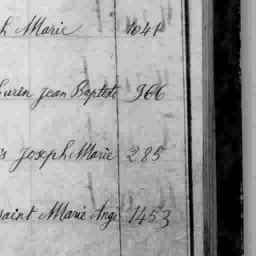 h Marie 1041
urin Jean Baptiste 966
is Joseph Marie 285
saint Marie Ange 1453